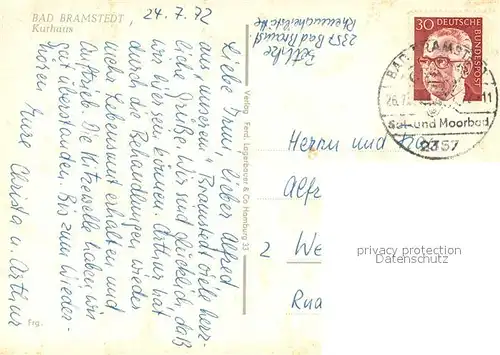 BAD BRAMSTEDT
Kurhaus
24.7.72
Liebe Irmi, lieber Alfred
aus „unserem" Bramstedt viele herz-
liche Grüße. Wir sind glücklich, daß
wir hier sein können. Arthur hat
durch die Behandlungen wieder
mehr Lebensmut erhalten und
Auftrieb. Die Hitzewelle haben wir
gut überstanden. Bis zum Wieder-
hören Eure Christa u. Arthur
Frg.
Verlag Ferd. Lagerbauer & Co Hamburg 33
2357 Bad Bramst.
30 DEUTSCHE BUNDESPOST
BAD BRAMSTE
26.7.
11
Sol- und Moorbad
2357
Herrn und
Alfr
2 We
privacy protection
Datenschutz